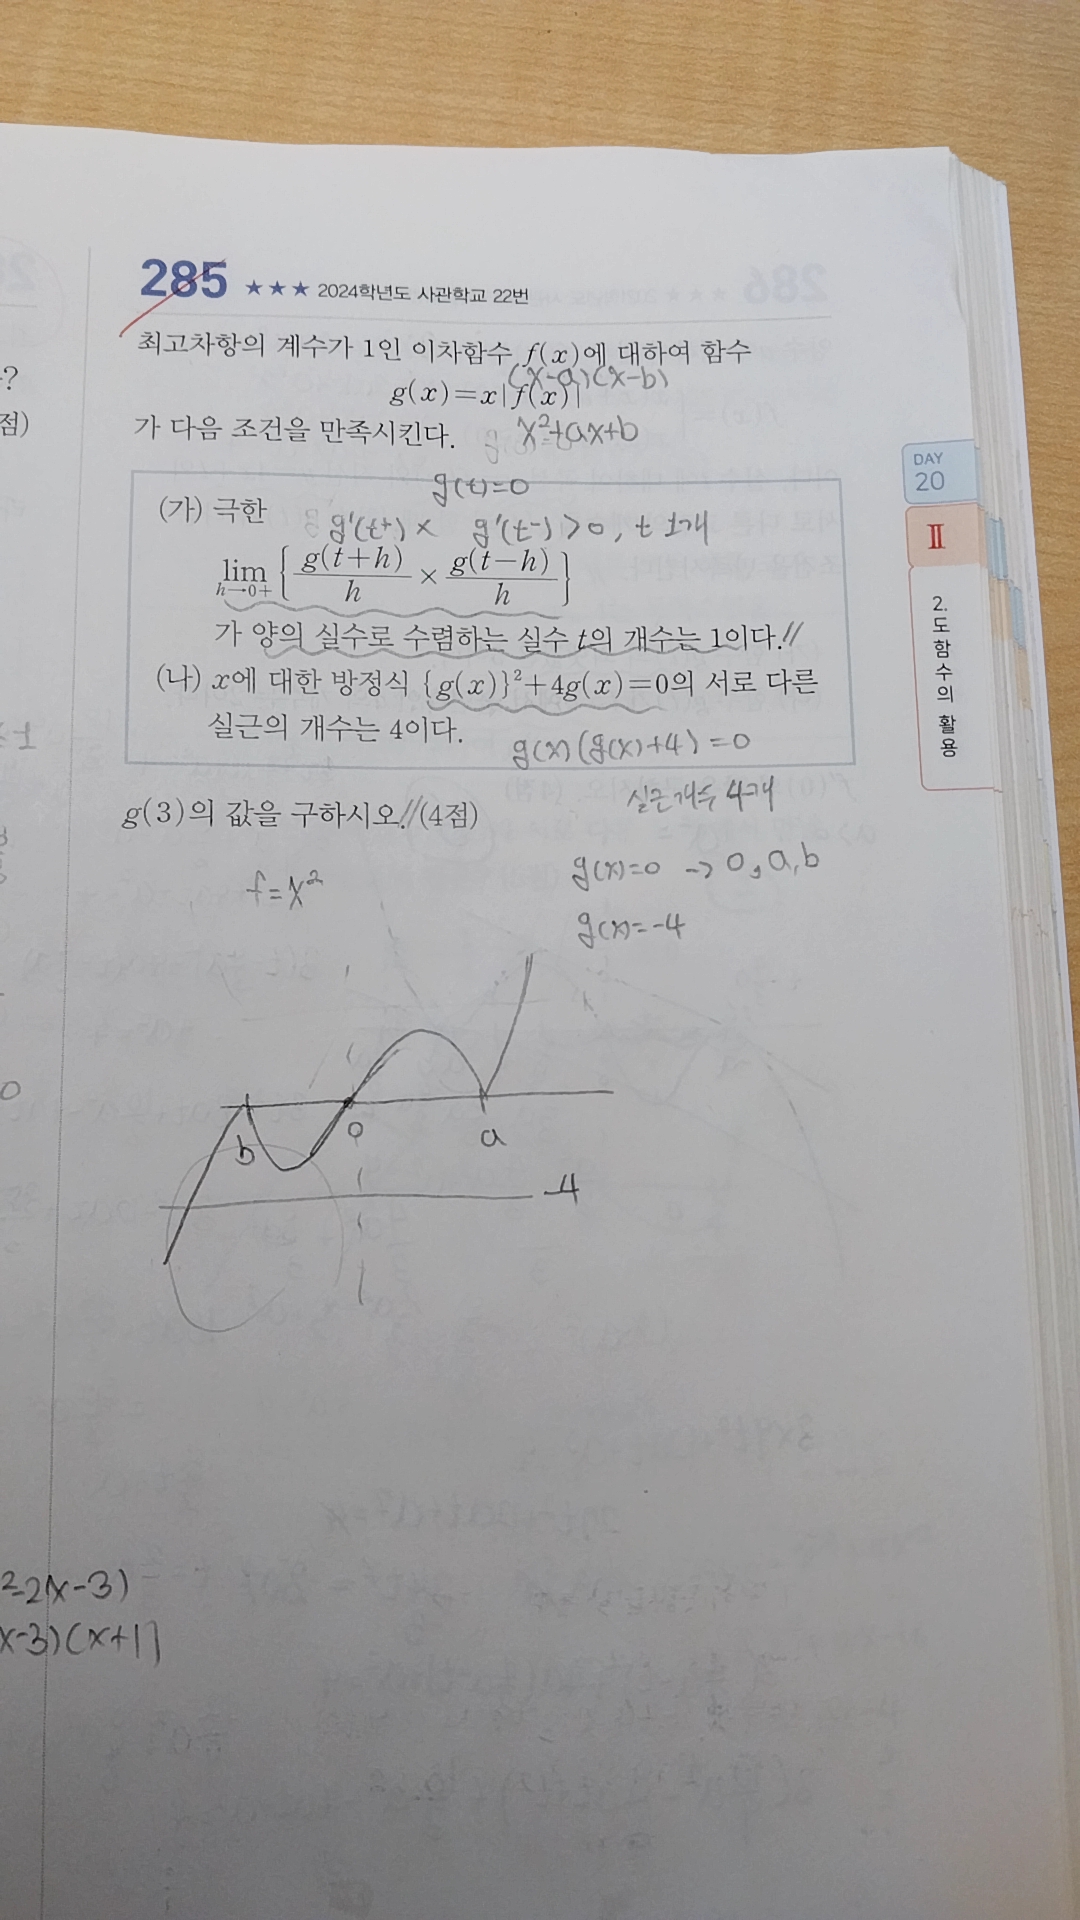 285 ★★★ 2024학년도 사관학교 22번
최고차항의 계수가 1인 이차함수 f(x)에 대하여 함수
(x-a)(x-b)
g(x)=x|f(x)|
가 다음 조건을 만족시킨다.
x²+ax+b
g(t)=0
(가) 극한
g'(t+) × g'(t-)>0, t 1개
lim h→0+ { g(t+h)/h × g(t-h)/h }
가 양의 실수로 수렴하는 실수 t의 개수는 1이다.//
(나) x에 대한 방정식 {g(x)}²+4g(x)=0의 서로 다른
실근의 개수는 4이다.
g(x)(g(x)+4)=0
실근개수 4개
g(3)의 값을 구하시오.// (4점)
f=x²
g(x)=0 → 0, a, b
g(x)=-4
b 0 a
-4
DAY
20
II
2. 도함수의 활용
?
점)
0
²-2(x-3)
x-3)(x+1)